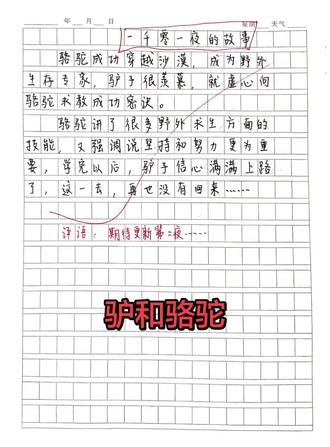 年 月 日 星期 天气
一千零一夜的故事
骆驼成功穿越沙漠，成为野外
生存专家，驴子很羡慕，就虚心向
骆驼求教成功密诀。
骆驼讲了很多野外求生方面的
技能，又强调说坚持和努力更为重
要，学完以后，驴子信心满满上路
了，这一去，再也没有回来……
评语：期待更新第二夜……
驴和骆驼